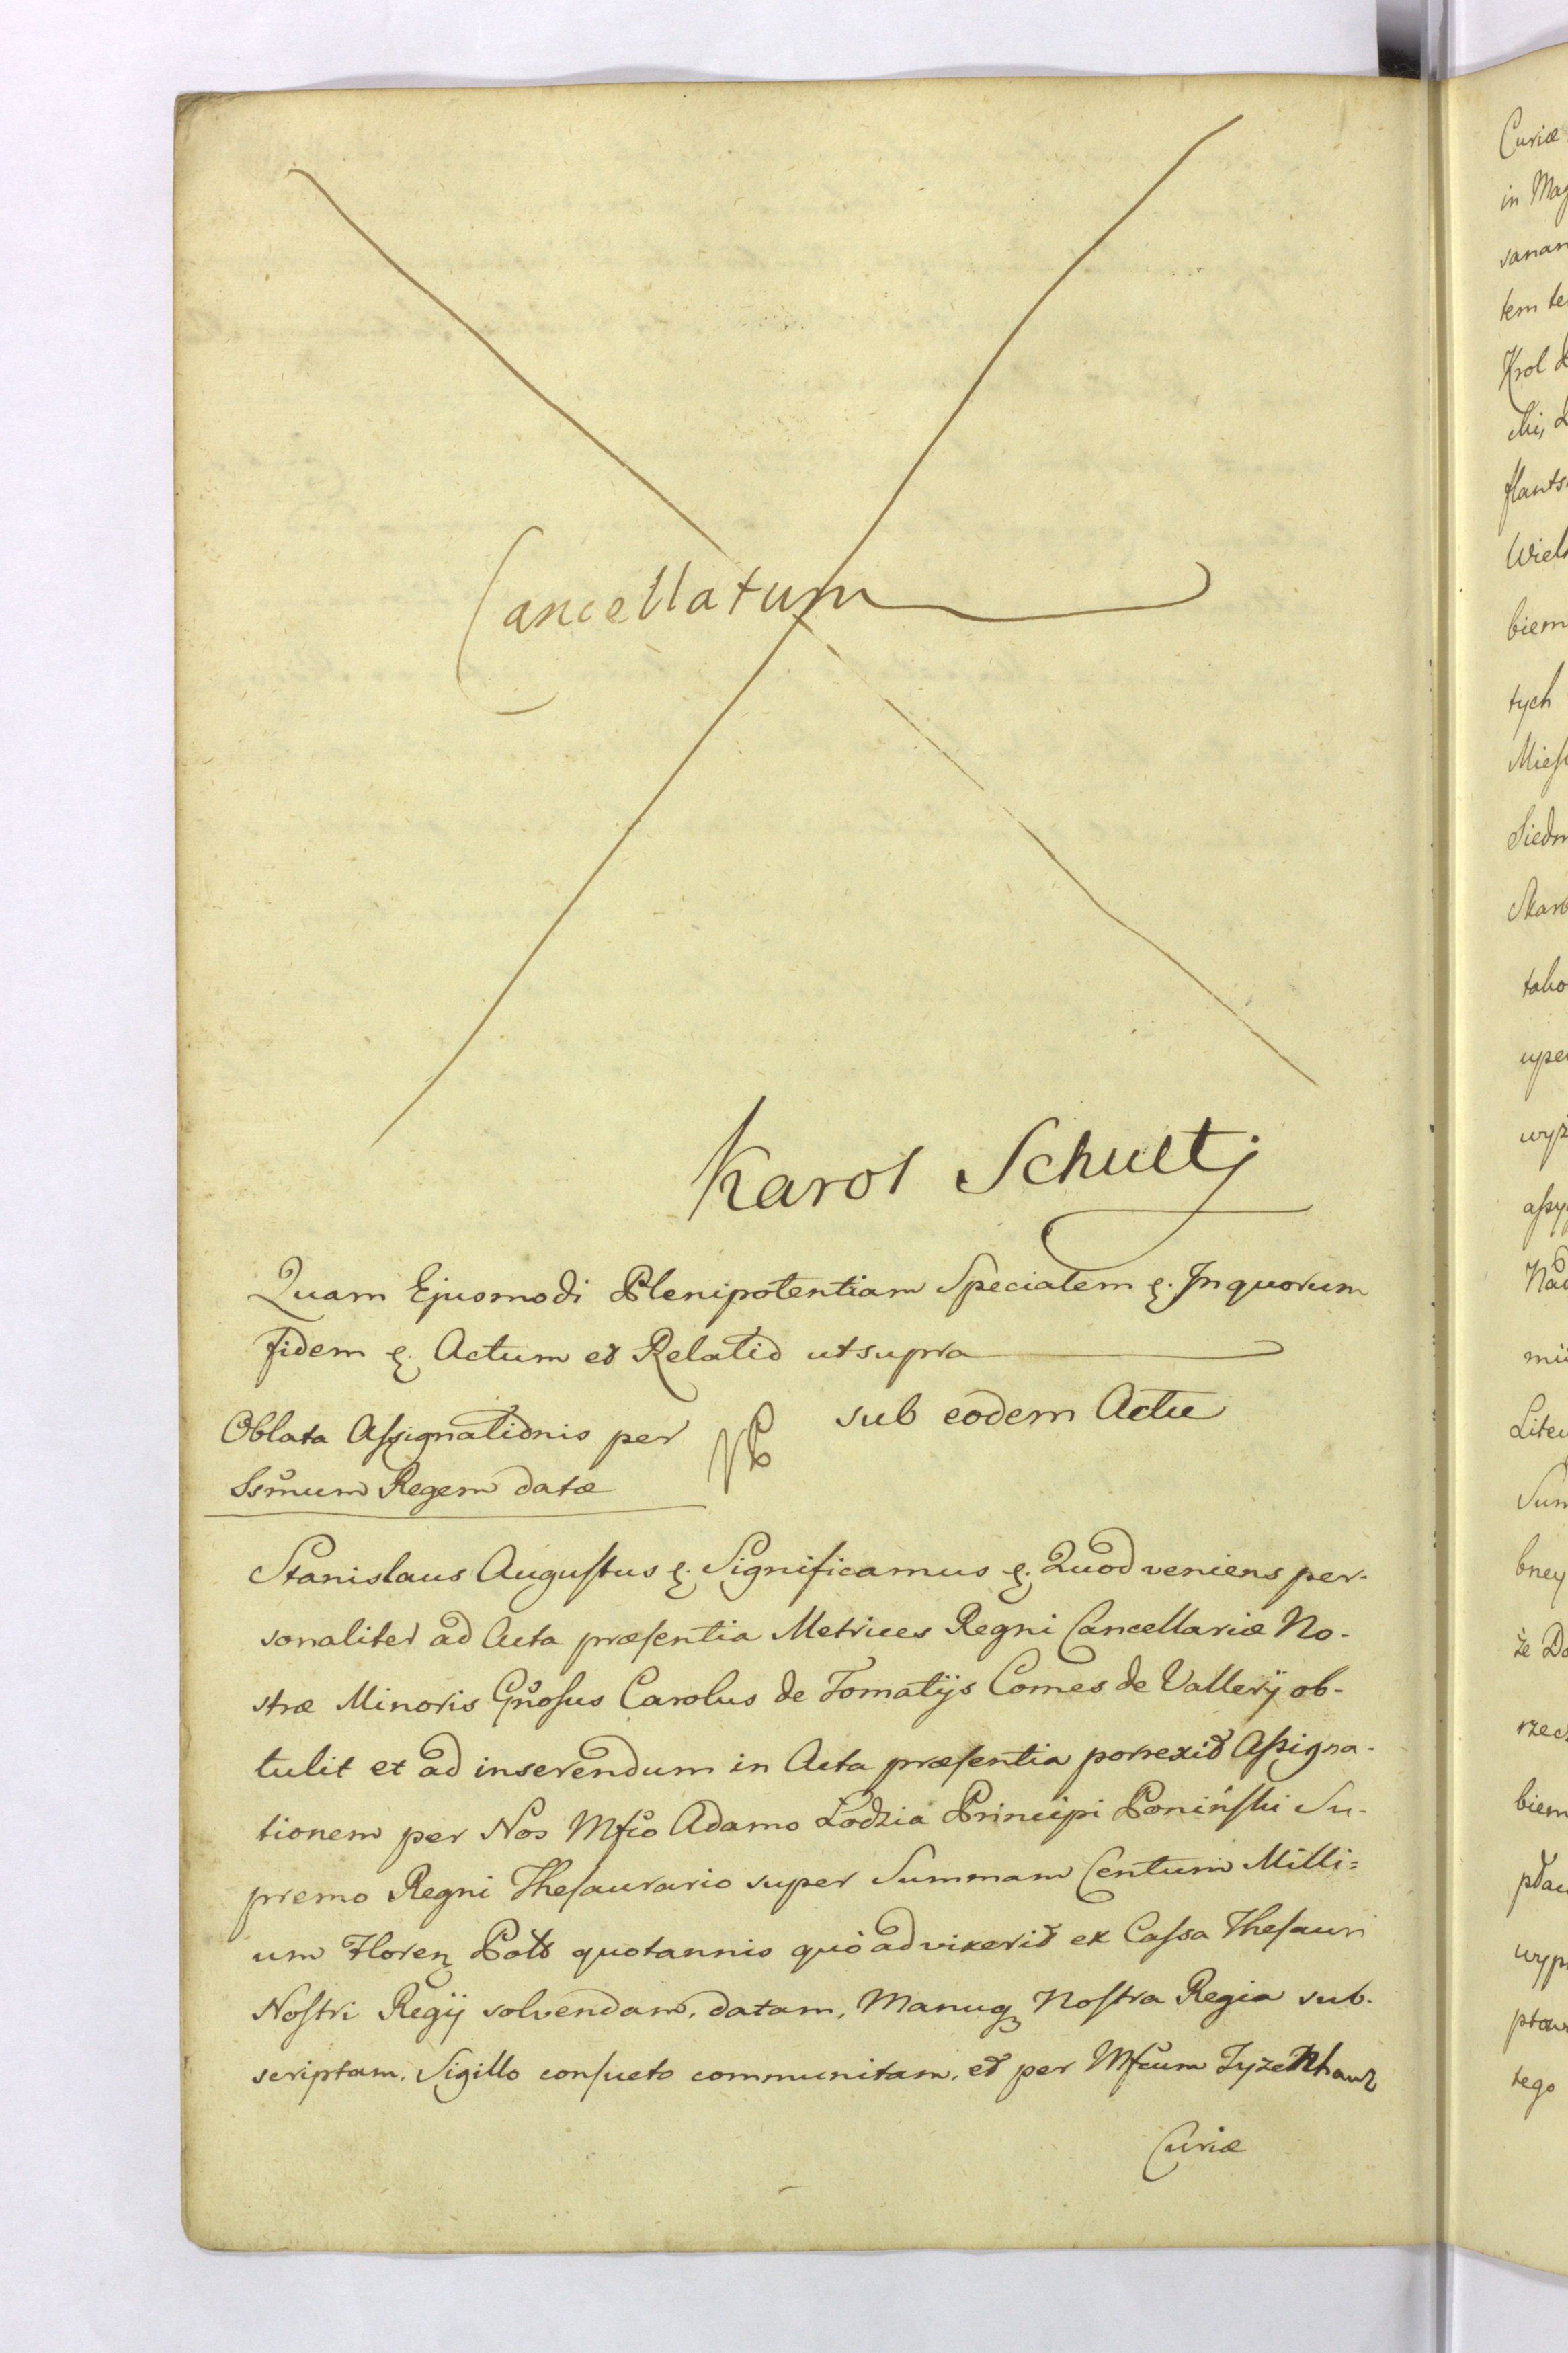 Cancellatum
Karol Schultz
Quam Ejusmodi Plenipotentiam Specialem &. In quorum
fidem &. Actum et Relatio ut supra
Oblata Assignationis per
Ssmum Regem datæ
sub eodem Actu
Stanislaus Augustus &. Significamus &. Quod veniens per-
sonaliter ad Acta præsentia Metrices Regni Cancellariæ No-
stræ Minoris Gnosus Carolus de Tomatijs Comes de Vallerÿ ob-
tulit et ad inserendum in Acta præsentia porrexit Assigna-
tionem per Nos Mfco Adamo Łodzia Principi Poniński Su-
premo Regni Thesaurario super Summam Centum Milli=
um Floren Polo quotannis quò ad vixerit ex Cassa Thesauri
Nostri Regij solvendam, datam, Manuq Nostra Regia sub-
scriptam, Sigillo consueto communitam, et per Mfcum Tyzenhauz
Curiæ
Curiæ
in Mag
tem te
Krol
Wiel
biem
tych
Siedm
tako
wyż
Sum
bney
że
biem
tego